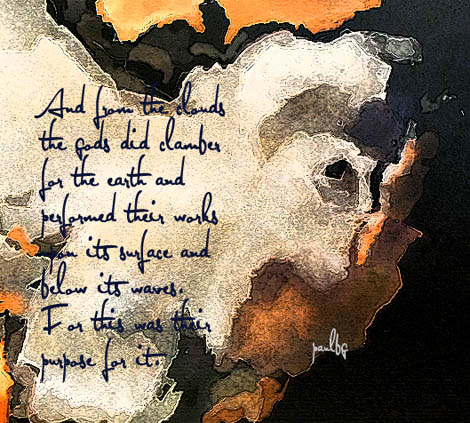 And from the clouds
the gods did clamber
for the earth and
performed their works
upon its surface and
below its waves.
For this was their
purpose for it.
paulbg